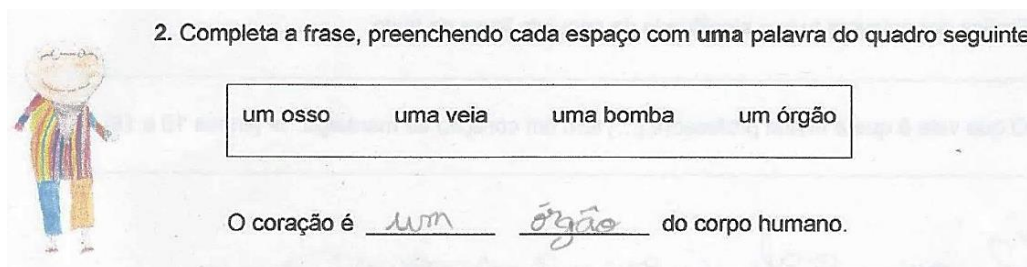 2. Completa a frase, preenchendo cada espaço com uma palavra do quadro seguinte
um osso uma veia uma bomba um órgão
O coração é um órgão do corpo humano.